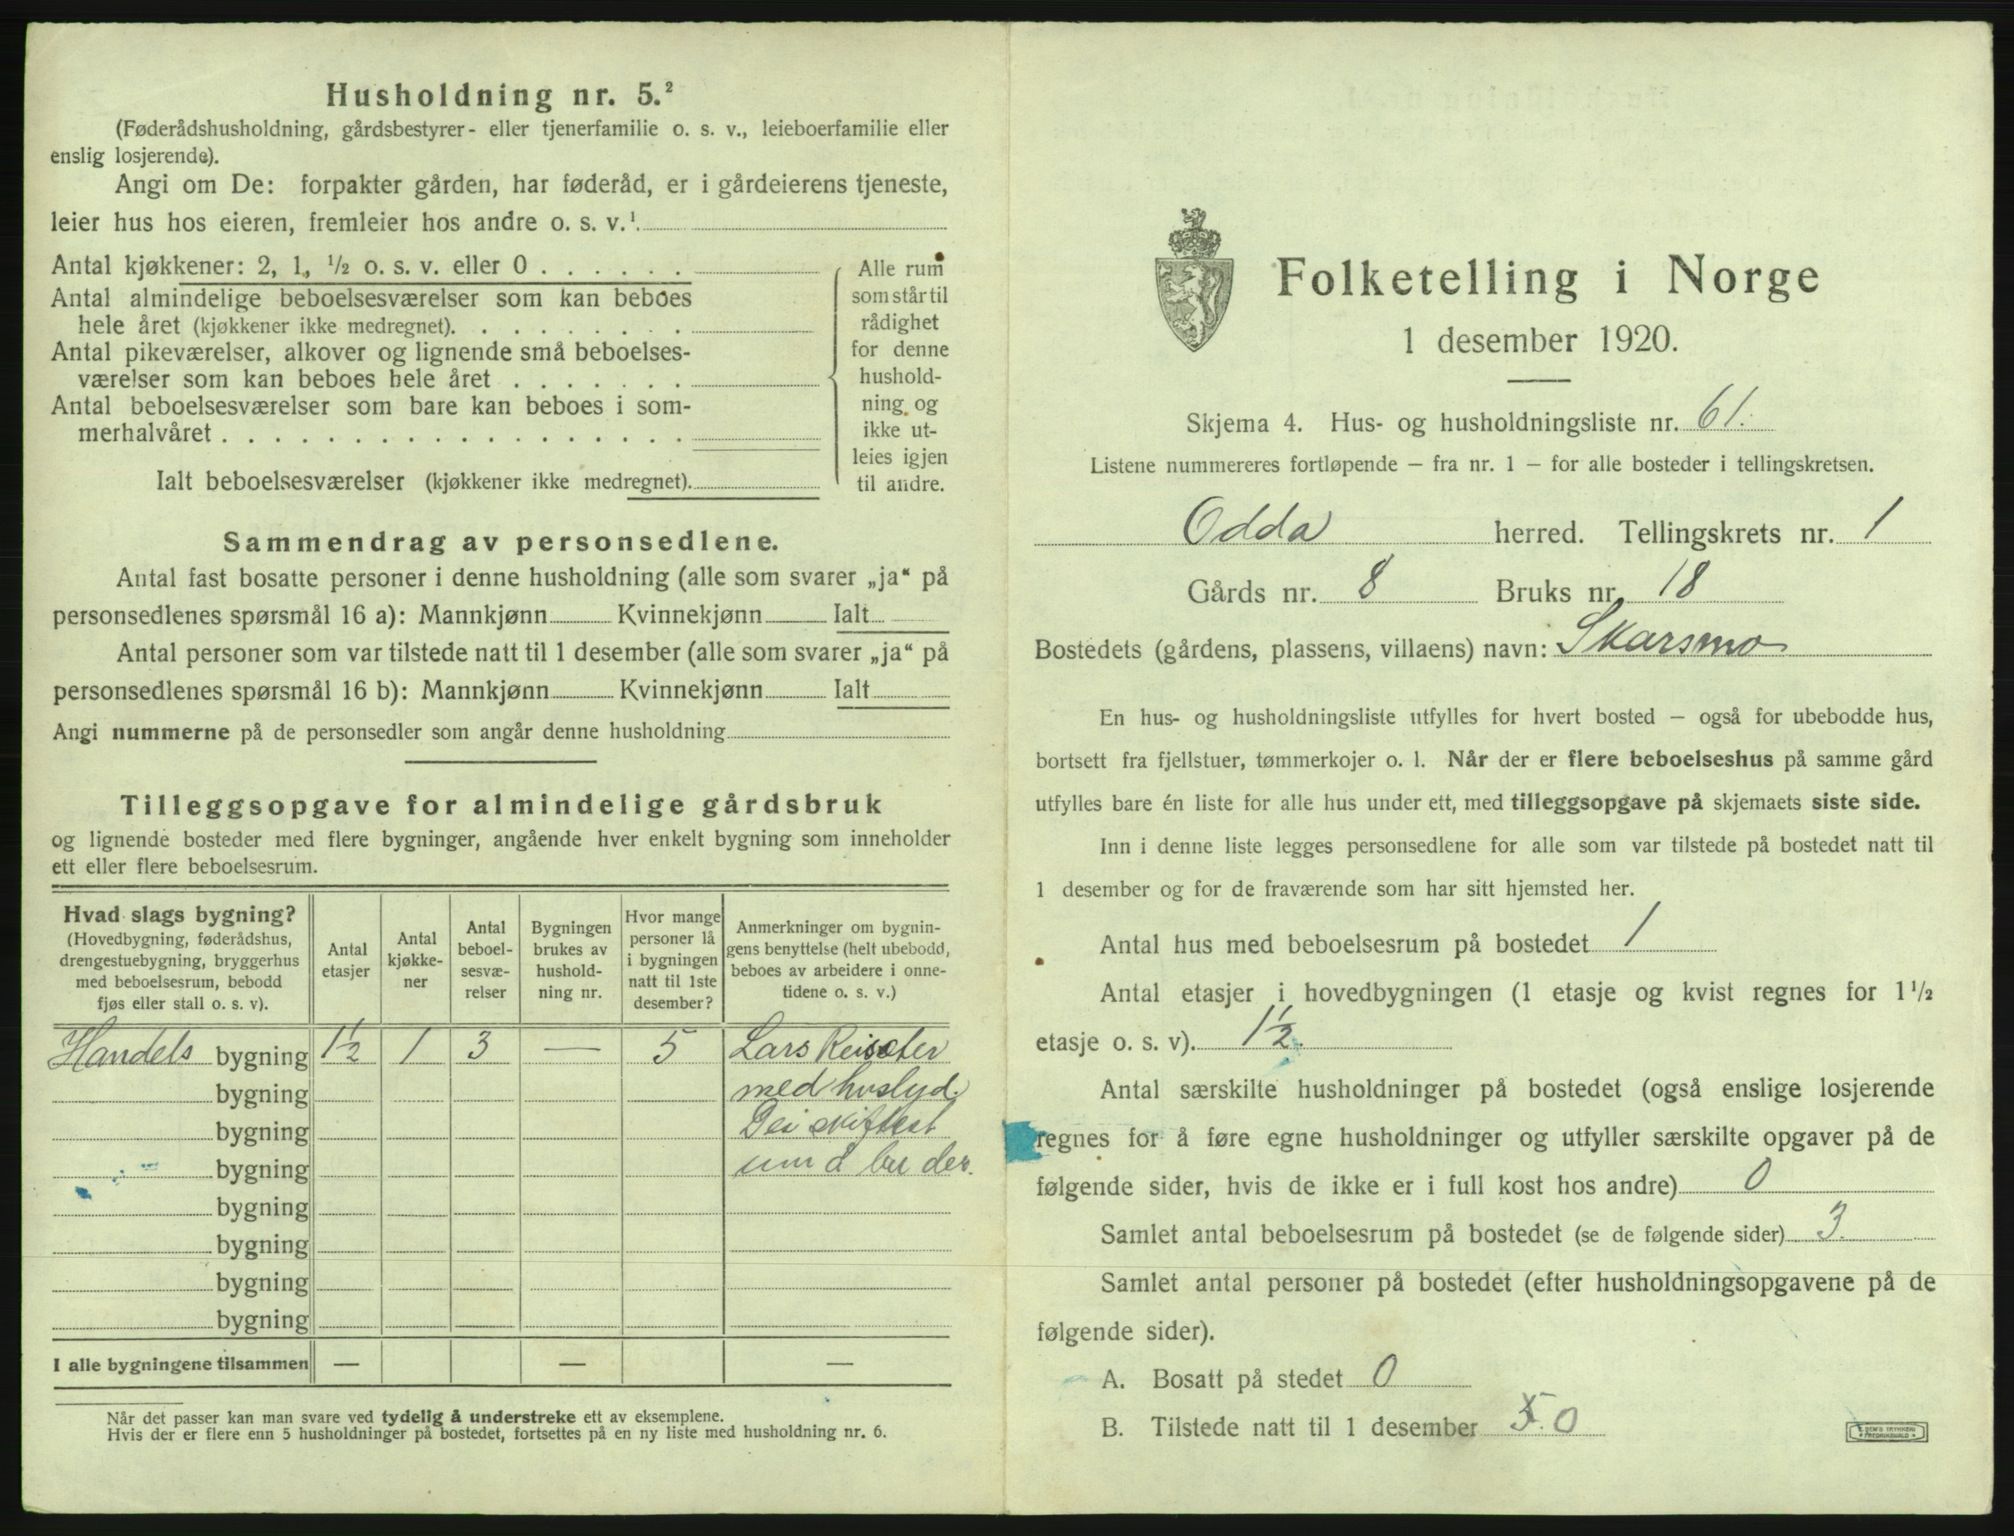 Husholdning nr. 5.²
(Føderådshusholdning, gårdsbestyrer- eller tjenerfamilie o. s. v., leieboerfamilie eller
enslig losjerende).
Angi om De: forpakter gården, har føderåd, er i gårdeierens tjeneste,
leier hus hos eieren, fremleier hos andre o. s. v.¹
Antal kjøkkener: 2, 1, ½ o. s. v. eller 0 . . . . . .
Antal almindelige beboelsesværelser som kan beboes
hele året (kjøkkener ikke medregnet). . . . . . . . .
Antal pikeværelser, alkover og lignende små beboelses-
værelser som kan beboes hele året . . . . . . .
Antal beboelsesværelser som bare kan beboes i som-
merhalvåret . . . . . . . . . . . . . . . . . .
Ialt beboelsesværelser (kjøkkener ikke medregnet).
Alle rum
som står til
rådighet
for denne
hushold-
ning og
ikke ut-
leies igjen
til andre.
Sammendrag av personsedlene.
Antal fast bosatte personer i denne husholdning (alle som svarer „ja“ på
personsedlenes spørsmål 16 a): Mannkjønn Kvinnekjønn Ialt
Antal personer som var tilstede natt til 1 desember (alle som svarer „ja“ på
personsedlenes spørsmål 16 b): Mannkjønn Kvinnekjønn Ialt
Angi nummerne på de personsedler som angår denne husholdning
Tilleggsopgave for almindelige gårdsbruk
og lignende bosteder med flere bygninger, angående hver enkelt bygning som inneholder
ett eller flere beboelsesrum.
Hvad slags bygning?
(Hovedbygning, føderådshus,
drengestuebygning, bryggerhus
med beboelsesrum, bebodd
fjøs eller stall o. s. v).
Antal
etasjer
Antal
kjøkke-
ner
Antal
beboel-
sesvæ-
relser
Bygningen
brukes av
hushold-
ning nr.
Hvor mange
personer lå
i bygningen
natt til 1ste
desember?
Anmerkninger om bygnin-
gens benyttelse (helt ubebodd,
beboes av arbeidere i onne-
tidene o. s. v.)
Handels bygning 1½ 1 3 — 5 Lars Reisæter
bygning med huslyd.
bygning Dei skiftest
bygning um å bu der.
bygning
bygning
bygning
bygning
I alle bygningene tilsammen — — —
Når det passer kan man svare ved tydelig å understreke ett av eksemplene.
Hvis der er flere enn 5 husholdninger på bostedet, fortsettes på en ny liste med husholdning nr. 6.
Folketelling i Norge
1 desember 1920.
Skjema 4. Hus- og husholdningsliste nr. 61.
Listene nummereres fortløpende – fra nr. 1 – for alle bosteder i tellingskretsen.
Odda herred. Tellingskrets nr. 1
Gårds nr. 8 Bruks nr. 18
Bostedets (gårdens, plassens, villaens) navn: Skarsmo
En hus- og husholdningsliste utfylles for hvert bosted – også for ubebodde hus,
bortsett fra fjellstuer, tømmerkojer o. l. Når der er flere beboelseshus på samme gård
utfylles bare én liste for alle hus under ett, med tilleggsopgave på skjemaets siste side.
Inn i denne liste legges personsedlene for alle som var tilstede på bostedet natt til
1 desember og for de fraværende som har sitt hjemsted her.
Antal hus med beboelsesrum på bostedet 1
Antal etasjer i hovedbygningen (1 etasje og kvist regnes for 1½
etasje o. s. v). 1½.
Antal særskilte husholdninger på bostedet (også enslige losjerende
regnes for å føre egne husholdninger og utfyller særskilte opgaver på de
følgende sider, hvis de ikke er i full kost hos andre) 0
Samlet antal beboelsesrum på bostedet (se de følgende sider) 3.
Samlet antal personer på bostedet (efter husholdningsopgavene på de
følgende sider).
A. Bosatt på stedet 0
B. Tilstede natt til 1 desember 5. 0